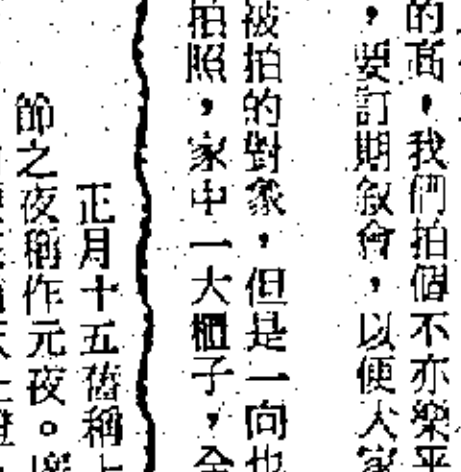 的高,我們拍個不亦樂乎
,要訂期敘會,以便大家
被拍的對象,但是一向也
拍照,家中一大櫃子,全
正月十五舊稱上
節之夜稱作元夜。